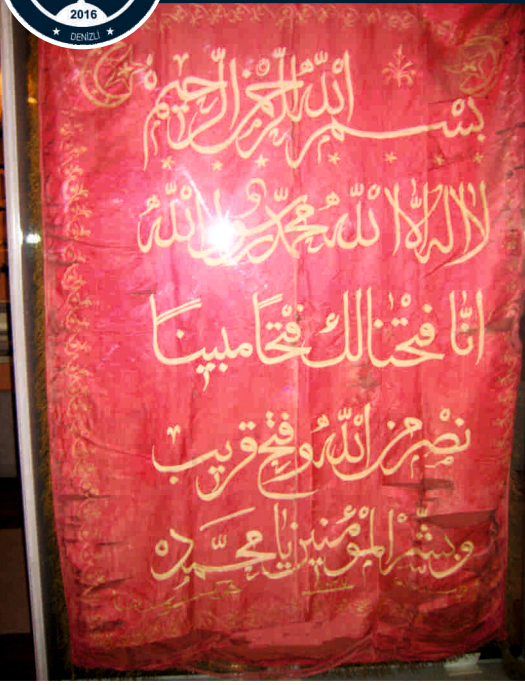 2016
DENİZLİ
بسم الله الرحمن الرحيم
لا اله الا الله محمد رسول الله
انا فتحنا لك فتحا مبينا
نصر من الله وفتح قريب
وبشر المؤمنين يا محمد